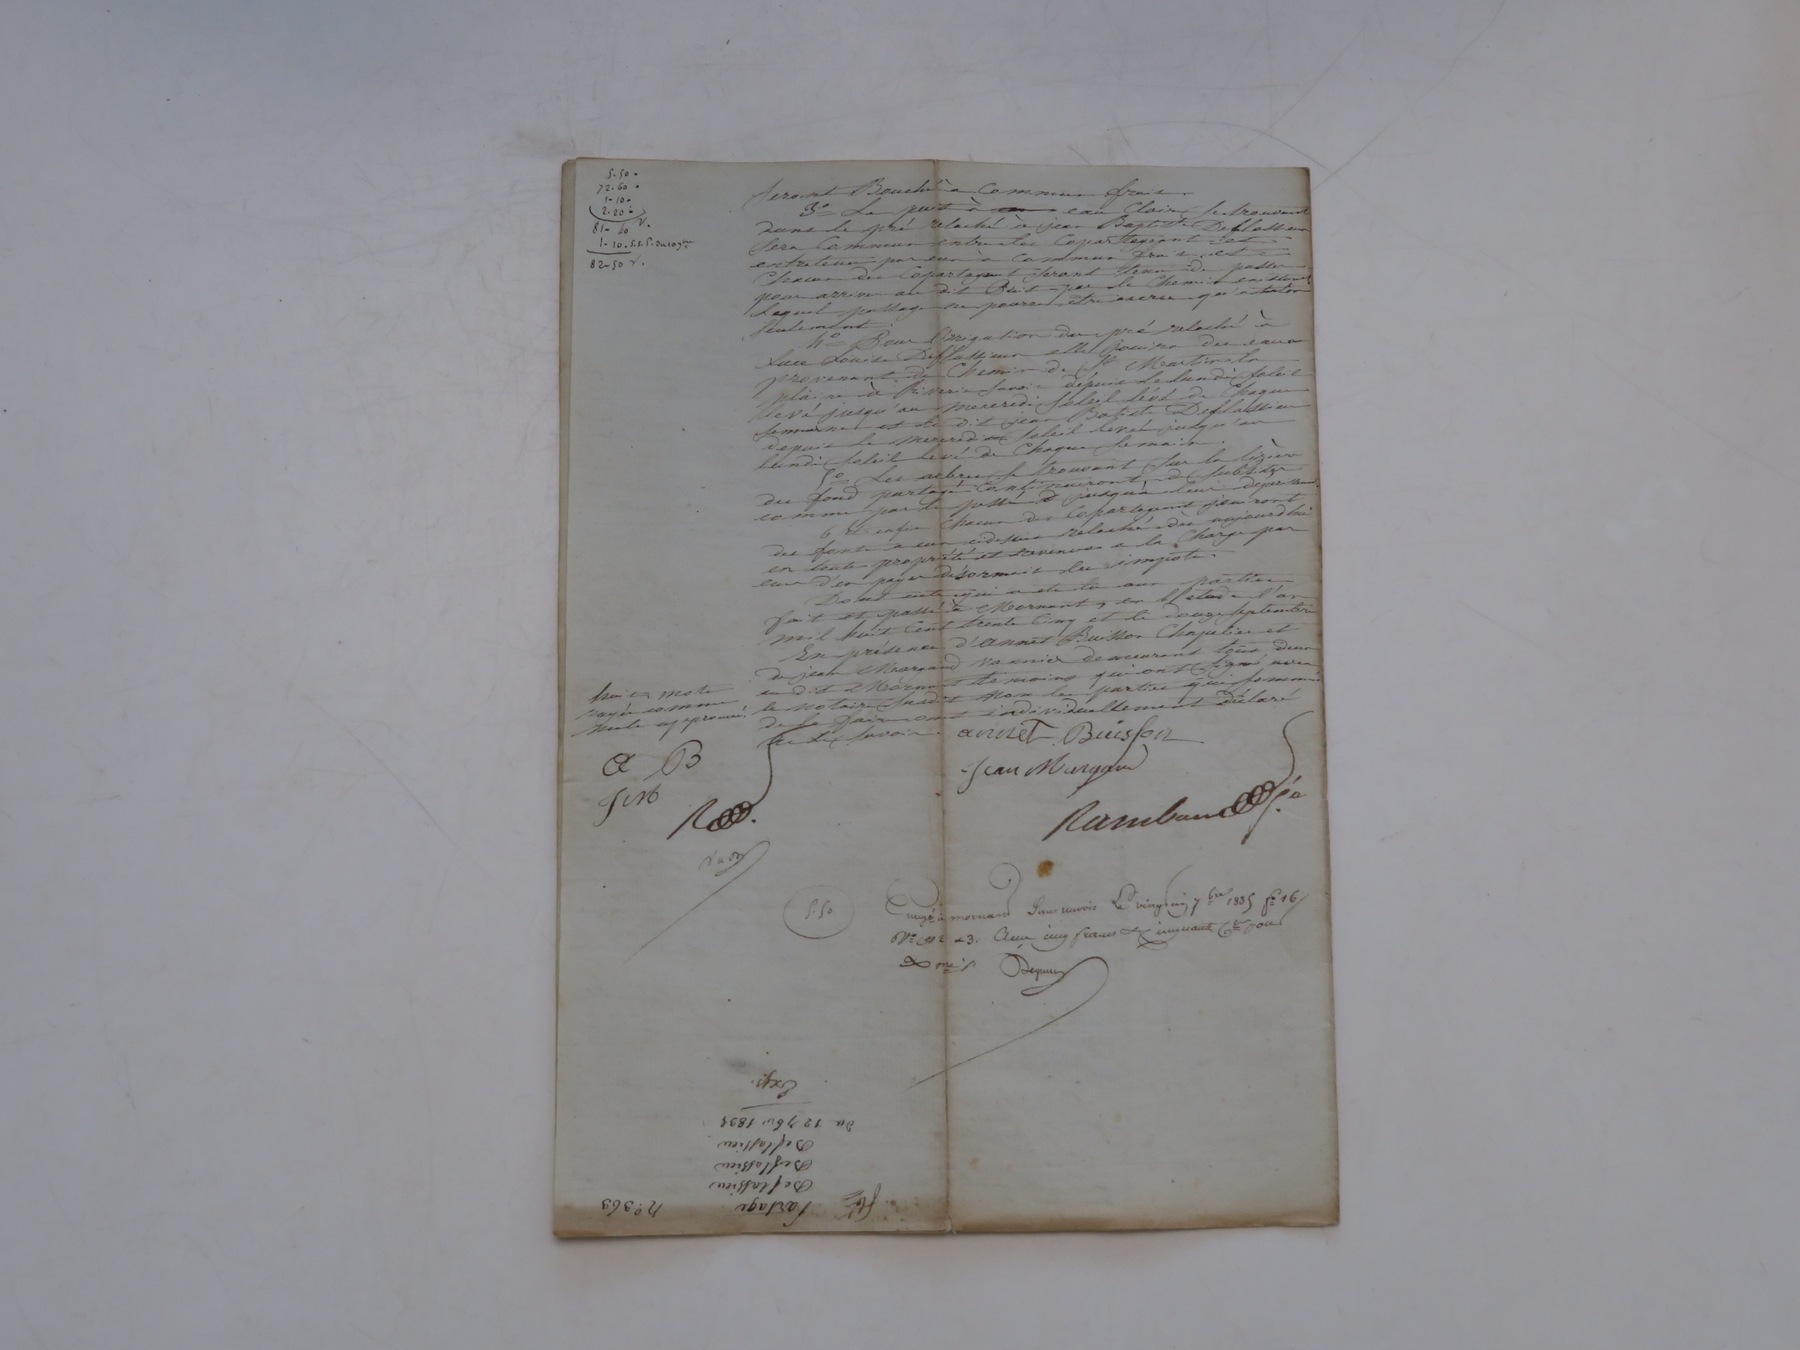 5.50.
72.60.
1-10.
2.20.
81-40 V.
1-10.
82-50 V.
Seront Bouché à Commun frais.
3º Le puit à eau Claire se trouvant
dans le pré relaché à jean Baptiste Deflassieu
Sera Commun entre les Copartageant et
entretenu par eux à Commun frais, et
Chacun des Copartageant seront tenu de passer
pour arriver au dit Puit par le Chemin
Lequel passage ne pourra être exercé qu'à talon
Seulement.
4º Pour l'irrigation du pré relaché à
Louise Deflassieux elle jouira des eaux
provenant du Chemin de St Martin la
plaine à Riverie savoir depuis le lundi soleil
levé jusqu'au mercredi soleil levé de Chaque
semaine et le dit jean Baptiste Deflassieu
depuis le mercredi soleil levé jusqu'au
lundi soleil levé de Chaque semaine.
5º Les arbres se trouvant sur la lizière
du fond partagé Continueront de subsister
comme par le passé jusqu'à leur
6º et enfin Chacun des Copartageant jouiront
des fonds à eux cidessus relaché dès aujourdhui
en toute propriété et revenus à la Charge par
eux d'en payer désormais les impots.
Dont acte qui a été lu aux parties
fait et passé à Mornant, en l'étude l'an
mil huit Cent trente Cinq et le douze septembre
En présence d'annet Buisson Chapelier et
de jean Margand vannier demeurant tous deux
au dit Mornant témoins qui ont signé avec
le notaire susdit Non les parties qui sommé
de le faire ont individuellement déclaré
ne le savoir.
huit mots
rayés comme
nuls approuvés
annet Buisson
Jean Margand
A B
J M
R
Rambaud
5.50
à mornant Sans renvoi Le vingt cinq 7bre 1835 fº 16
Vº Cses 2 et 3. Reçu cinq francs cinquante
Partage
Deflassieu
Deflassieu
Deflassieu
Du 12 7bre 1835
Exp.
Nº 363